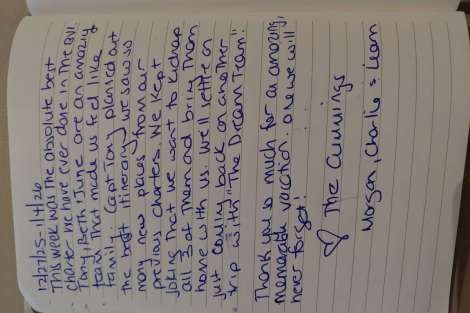 12/27/25-1/4/26
This week was the absolute best
charter we have ever done in the BVI.
Tony, Beth & June are an amazing
team that made us feel like
family. Capt Tony planned out
the best itinerary we saw so
many new places from our
previous charters. We kept
joking that we want to kidnap
all 3 of them and bring them
home with us. We'll settle on
just coming back on another
trip with "The Dream Team."
Thank you so much for an amazing,
memorable vacation. one we will
never forget!
♡ The Cummings
Morgan, Charlie & Liam